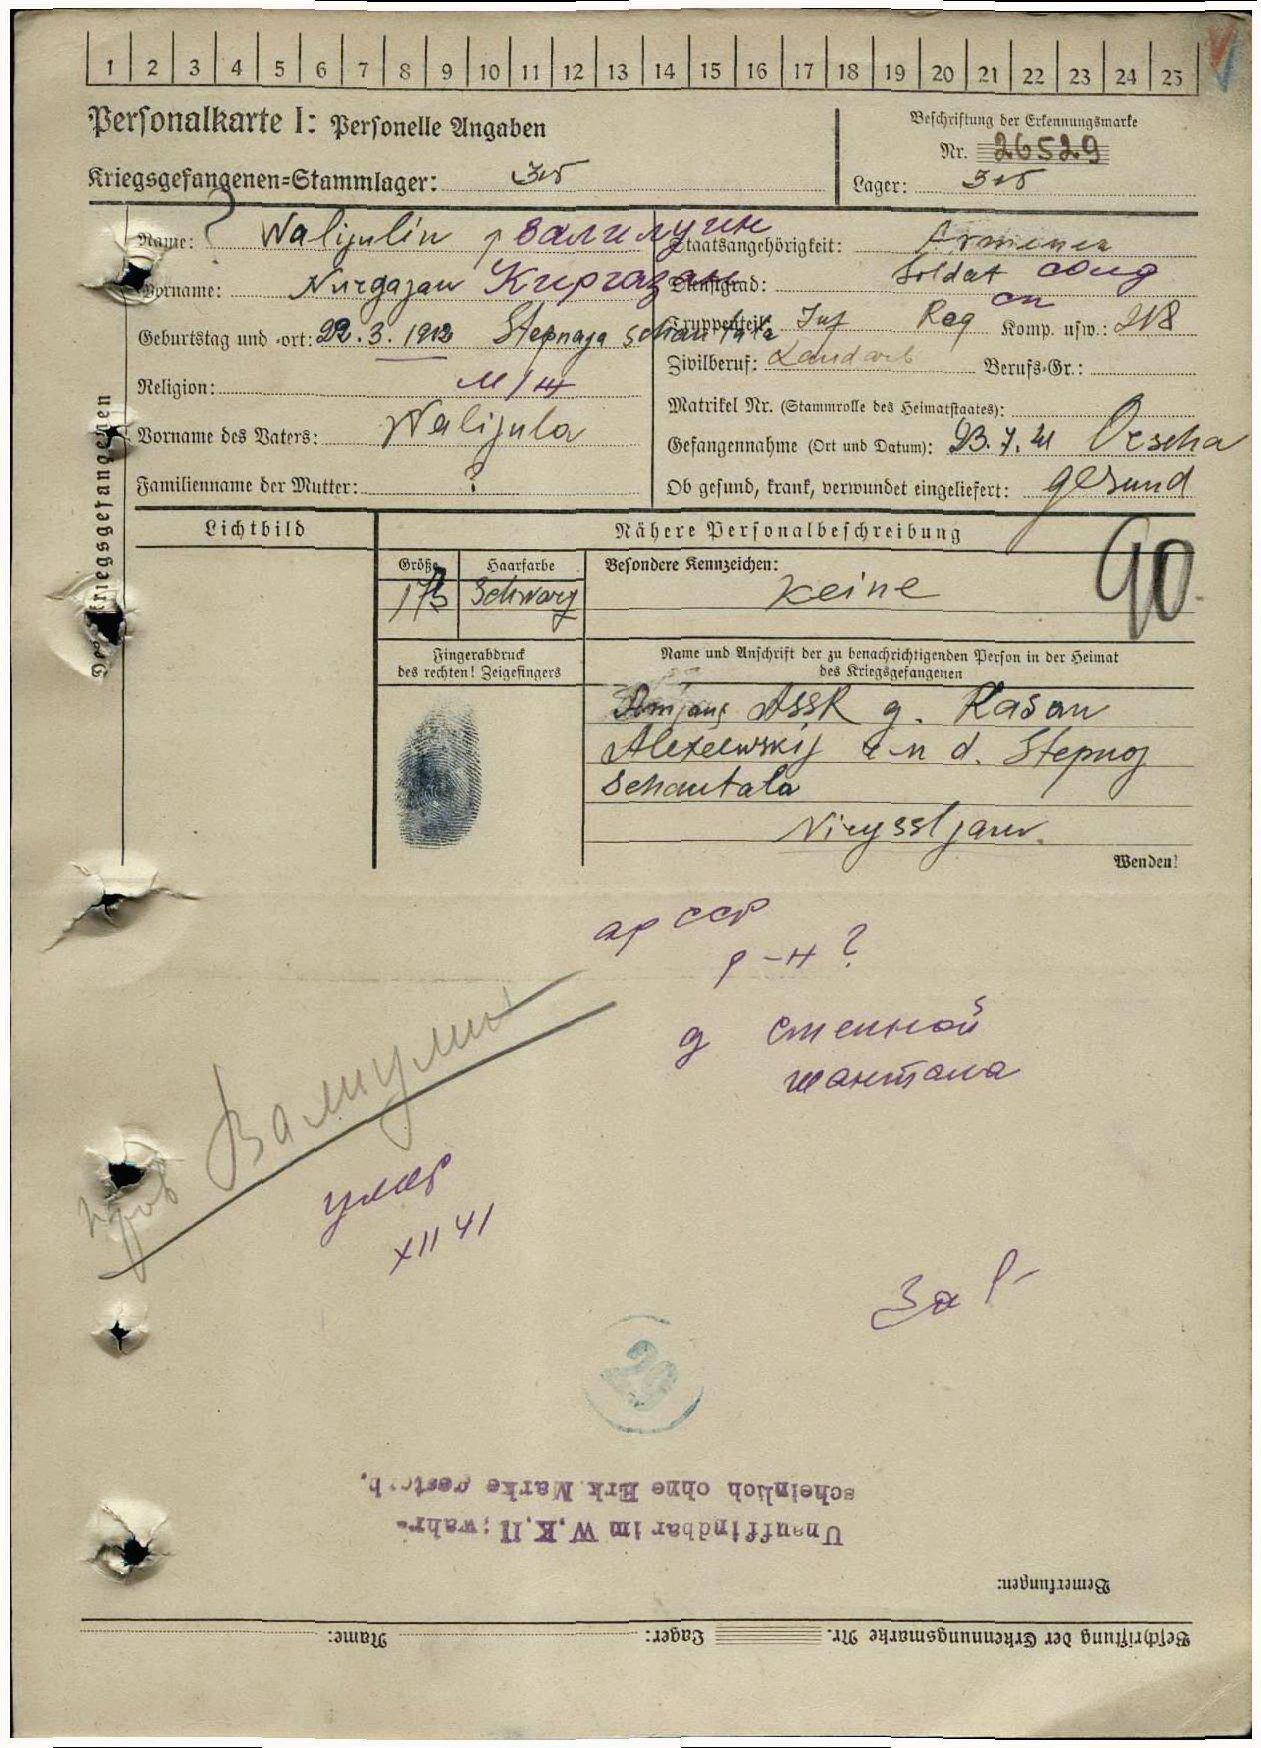 1 2 3 4 5 6 7 8 9 10 11 12 13 14 15 16 17 18 19 20 21 22 23 24 25
Personalkarte I: Personelle Angaben
Kriegsgefangenen=Stammlager:
Beschriftung der Erkennungsmarke
Nr. 26529
Lager:
Name: Walijulin Валилулин
Vorname: Nurgajan Киргазан
Geburtstag und -ort: 22. 3. 1912 Stepnaja Schantala
Religion: М/Ш
Vorname des Vaters: Walijula
Familienname der Mutter: ?
Staatsangehörigkeit: Armenea
Dienstgrad: Soldat солд
Truppenteil: Inf Reg сп Komp. usw.: 218
Zivilberuf: Landarb Berufs=Gr.:
Matrikel Nr. (Stammrolle des Heimatstaates):
Gefangennahme (Ort und Datum): 23. 7. 41 Orscha
Ob gesund, krank, verwundet eingeliefert: gesund
Des Kriegsgefangenen
Lichtbild
Nähere Personalbeschreibung
Größe Haarfarbe Besondere Kennzeichen:
173 Schwarz keine
90
Fingerabdruck
des rechten! Zeigefingers
Name und Anschrift der zu benachrichtigenden Person in der Heimat
des Kriegsgefangenen
ASSR g. Kasan
Alexeewskij r-n d. Stepnoj
Schantala
Wenden!
ар ССР
р-н?
д Степной
Шантала
пров Валиулин
умер
XII 41
За
29
Unauffindbar im W.K.II; wahr-
scheinlich ohne Erk Marke gestorb.
Bemerkungen:
Beschriftung der Erkennungsmarke Nr. Lager: Name: